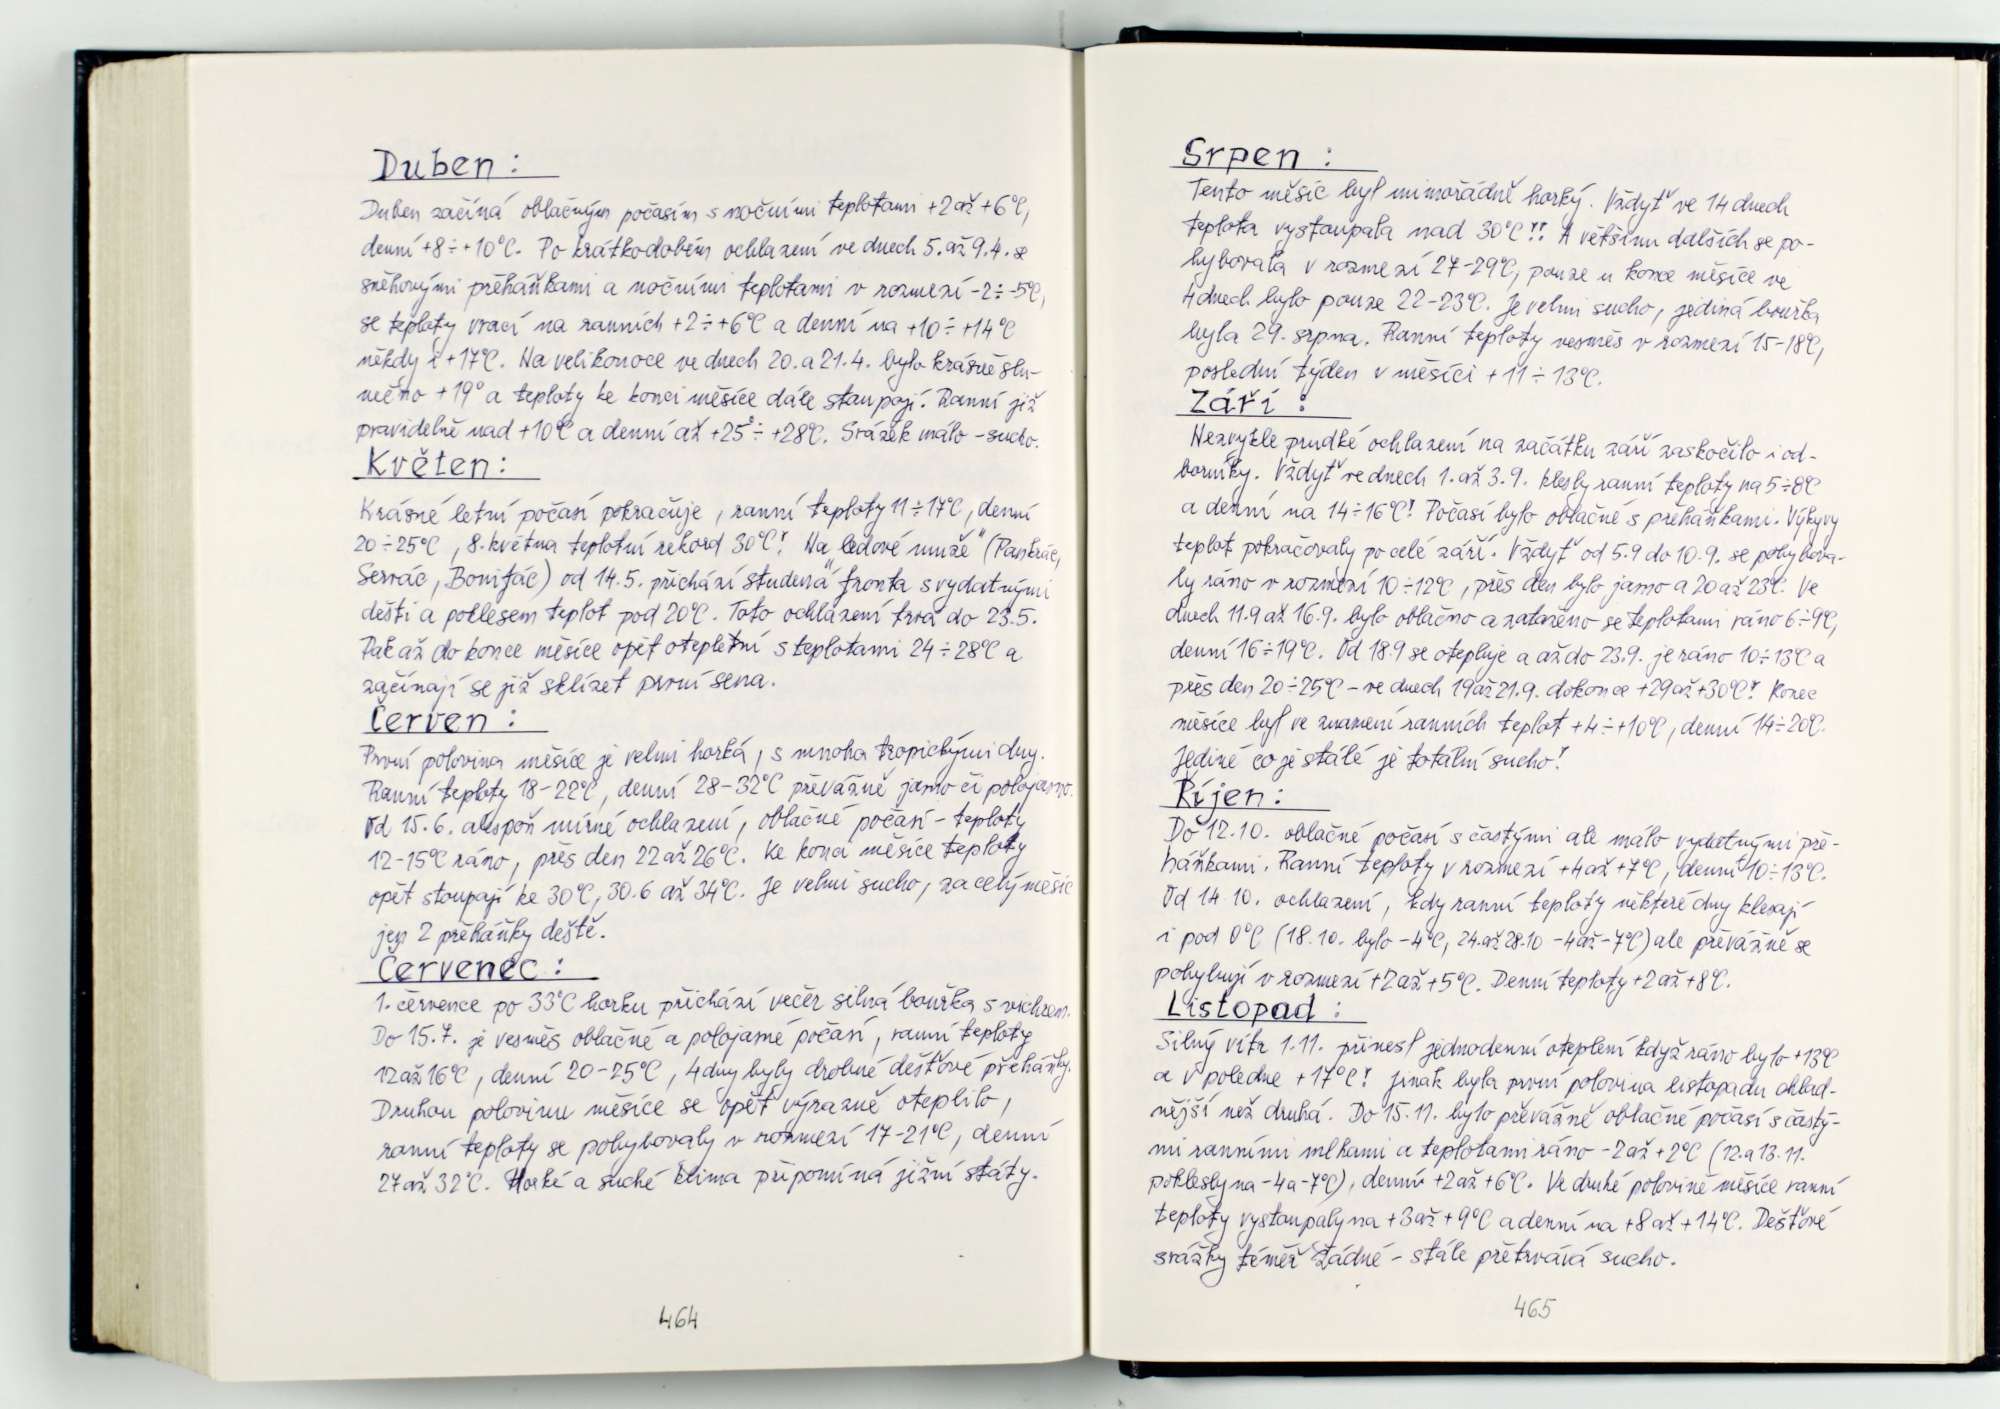 Duben :
Duben začíná oblačným počasím s nočními teplotami +2 až +6°C,
denní +8 ÷ +10°C. Po krátkodobém ochlazení ve dnech 5. až 9.4. se
sněhovými přeháňkami a nočními teplotami v rozmezí -2 ÷ -5°C,
se teploty vrací na ranních +2 ÷ +6°C a denní na +10 ÷ +14°C
někdy i +17°C. Na velikonoce ve dnech 20. a 21.4. bylo krásně slu-
nečno +19° a teploty ke konci měsíce dále stoupají. Ranní již
pravidelně nad +10°C a denní až +25° ÷ +28°C. Srážek málo - sucho.
Květen :
Krásné letní počasí pokračuje, ranní teploty 11 ÷ 17°C, denní
20 ÷ 25°C, 8. května teplotní rekord 30°C! Na ledové muže" (Pankrác,
Servác, Bonifác) od 14.5. přichází studená „fronta s vydatnými
dešti a poklesem teplot pod 20°C. Toto ochlazení trvá do 23.5.
Pak až do konce měsíce opět oteplení s teplotami 24 ÷ 28°C a
začínají se již sklízet první sena.
Červen :
První polovina měsíce je velmi horká, s mnoha tropickými dny.
Ranní teploty 18-22°C, denní 28-32°C převážně jasno či polojasno.
Od 15.6. alespoň mírné ochlazení, oblačné počasí - teploty
12-15°C ráno, přes den 22 až 26°C. Ke konci měsíce teploty
opět stoupají ke 30°C, 30.6 až 34°C. Je velmi sucho, za celý měsíc
jen 2 přeháňky deště.
Červenec :
1. července po 33°C horku přichází večer silná bouřka s vichrem.
Do 15.7. je vesměs oblačné a polojasné počasí, ranní teploty
12 až 16°C, denní 20-25°C, 4 dny byly drobné dešťové přeháňky.
Druhou polovinu měsíce se opět výrazně oteplilo,
ranní teploty se pohybovaly v rozmezí 17-21°C, denní
27 až 32°C. Horké a suché klima připomíná jižní státy.
464
Srpen :
Tento měsíc byl mimořádně horký. Vždyť ve 14 dnech
teplota vystoupala nad 30°C!! A většinu dalších se po-
hybovala v rozmezí 27-29°C, pouze u konce měsíce ve
4 dnech bylo pouze 22-23°C. Je velmi sucho, jediná bouřka
byla 29. srpna. Ranní teploty vesměs v rozmezí 15-18°C,
poslední týden v měsíci +11 ÷ 13°C.
Září :
Nezvykle prudké ochlazení na začátku září zaskočilo i od-
borníky. Vždyť ve dnech 1. až 3.9. klesly ranní teploty na 5 ÷ 8°C
a denní na 14 ÷ 16°C! Počasí bylo oblačné s přeháňkami. Výkyvy
teplot pokračovaly po celé září. Vždyť od 5.9 do 10.9. se pohybova-
ly ráno v rozmezí 10 ÷ 12°C, přes den bylo jasno a 20 až 23°C. Ve
dnech 11.9 až 16.9. bylo oblačno a zataženo se teplotami ráno 6 ÷ 9°C,
denní 16 ÷ 19°C. Od 18.9 se otepluje a až do 23.9. je ráno 10 ÷ 13°C a
přes den 20 ÷ 25°C - ve dnech 19 až 21.9. dokonce +29 až +30°C! Konec
měsíce byl ve znamení ranních teplot +4 ÷ +10°C, denní 14 ÷ 20°C.
Jediné co je stálé je totální sucho!
Říjen :
Do 12.10. oblačné počasí s častými ale málo vydatnými pře-
háňkami. Ranní teploty v rozmezí +4 až +7°C, denní 10 ÷ 13°C.
Od 14.10. ochlazení, kdy ranní teploty některé dny klesají
i pod 0°C (18.10. bylo -4°C, 24. až 28.10 -4 až -7°C) ale převážně se
pohybují v rozmezí +2 až +5°C. Denní teploty +2 až +8°C.
Listopad :
Silný vítr 1.11. přinesl jednodenní oteplení když ráno bylo +13°C
a v poledne +17°C! Jinak byla první polovina listopadu chlad-
nější než druhá. Do 15.11. bylo převážně oblačné počasí s častý-
mi ranními mlhami a teplotami ráno -2 až +2°C (12. a 13.11.
poklesly na -4 a -7°C), denní +2 až +6°C. Ve druhé polovině měsíce ranní
teploty vystoupaly na +3 až +9°C a denní na +8 až +14°C. Dešťové
srážky téměř žádné - stále přetrvává sucho.
465